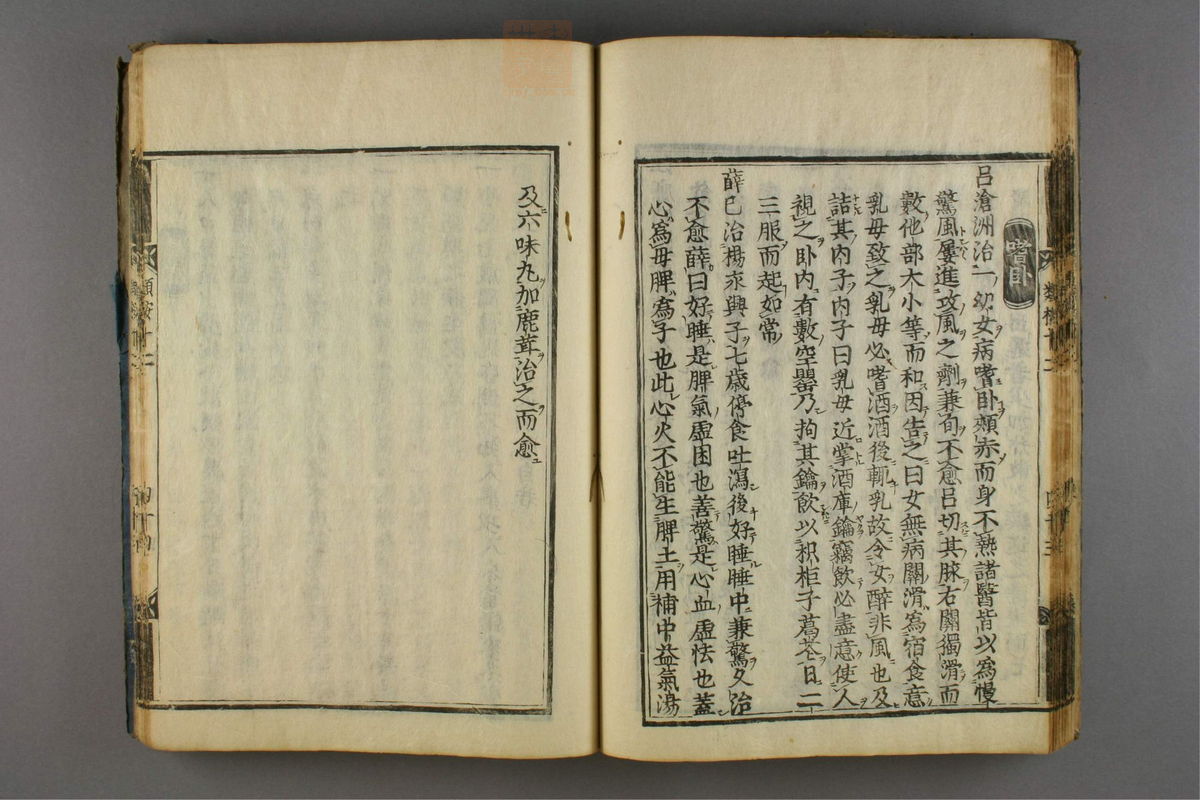 嗜卧
呂滄洲治一幼女病嗜卧頰赤而身不熱諸醫皆以為慢
驚風屢進攻風之劑兼旬不愈呂切其脉右關獨滑而
數他部大小等而和因告之曰女無病關滑為宿食意
乳母致之乳母必嗜酒酒後輒乳故令女醉非風也及
詰其内子内子曰乳母近掌酒庫鑰竊飲必盡意使人
視之卧内有數空罌乃拘其鑰飲以枳椇子葛花日二
三服而起如常
薛已治楊永興子七歳停食吐瀉後好睡睡中兼驚久治
不愈薛曰好睡是脾氣虛困也善驚是心血虛怯也葢
心為母脾為子也此心火不能生脾土用補中益氣湯
及六味丸加鹿茸治之而愈